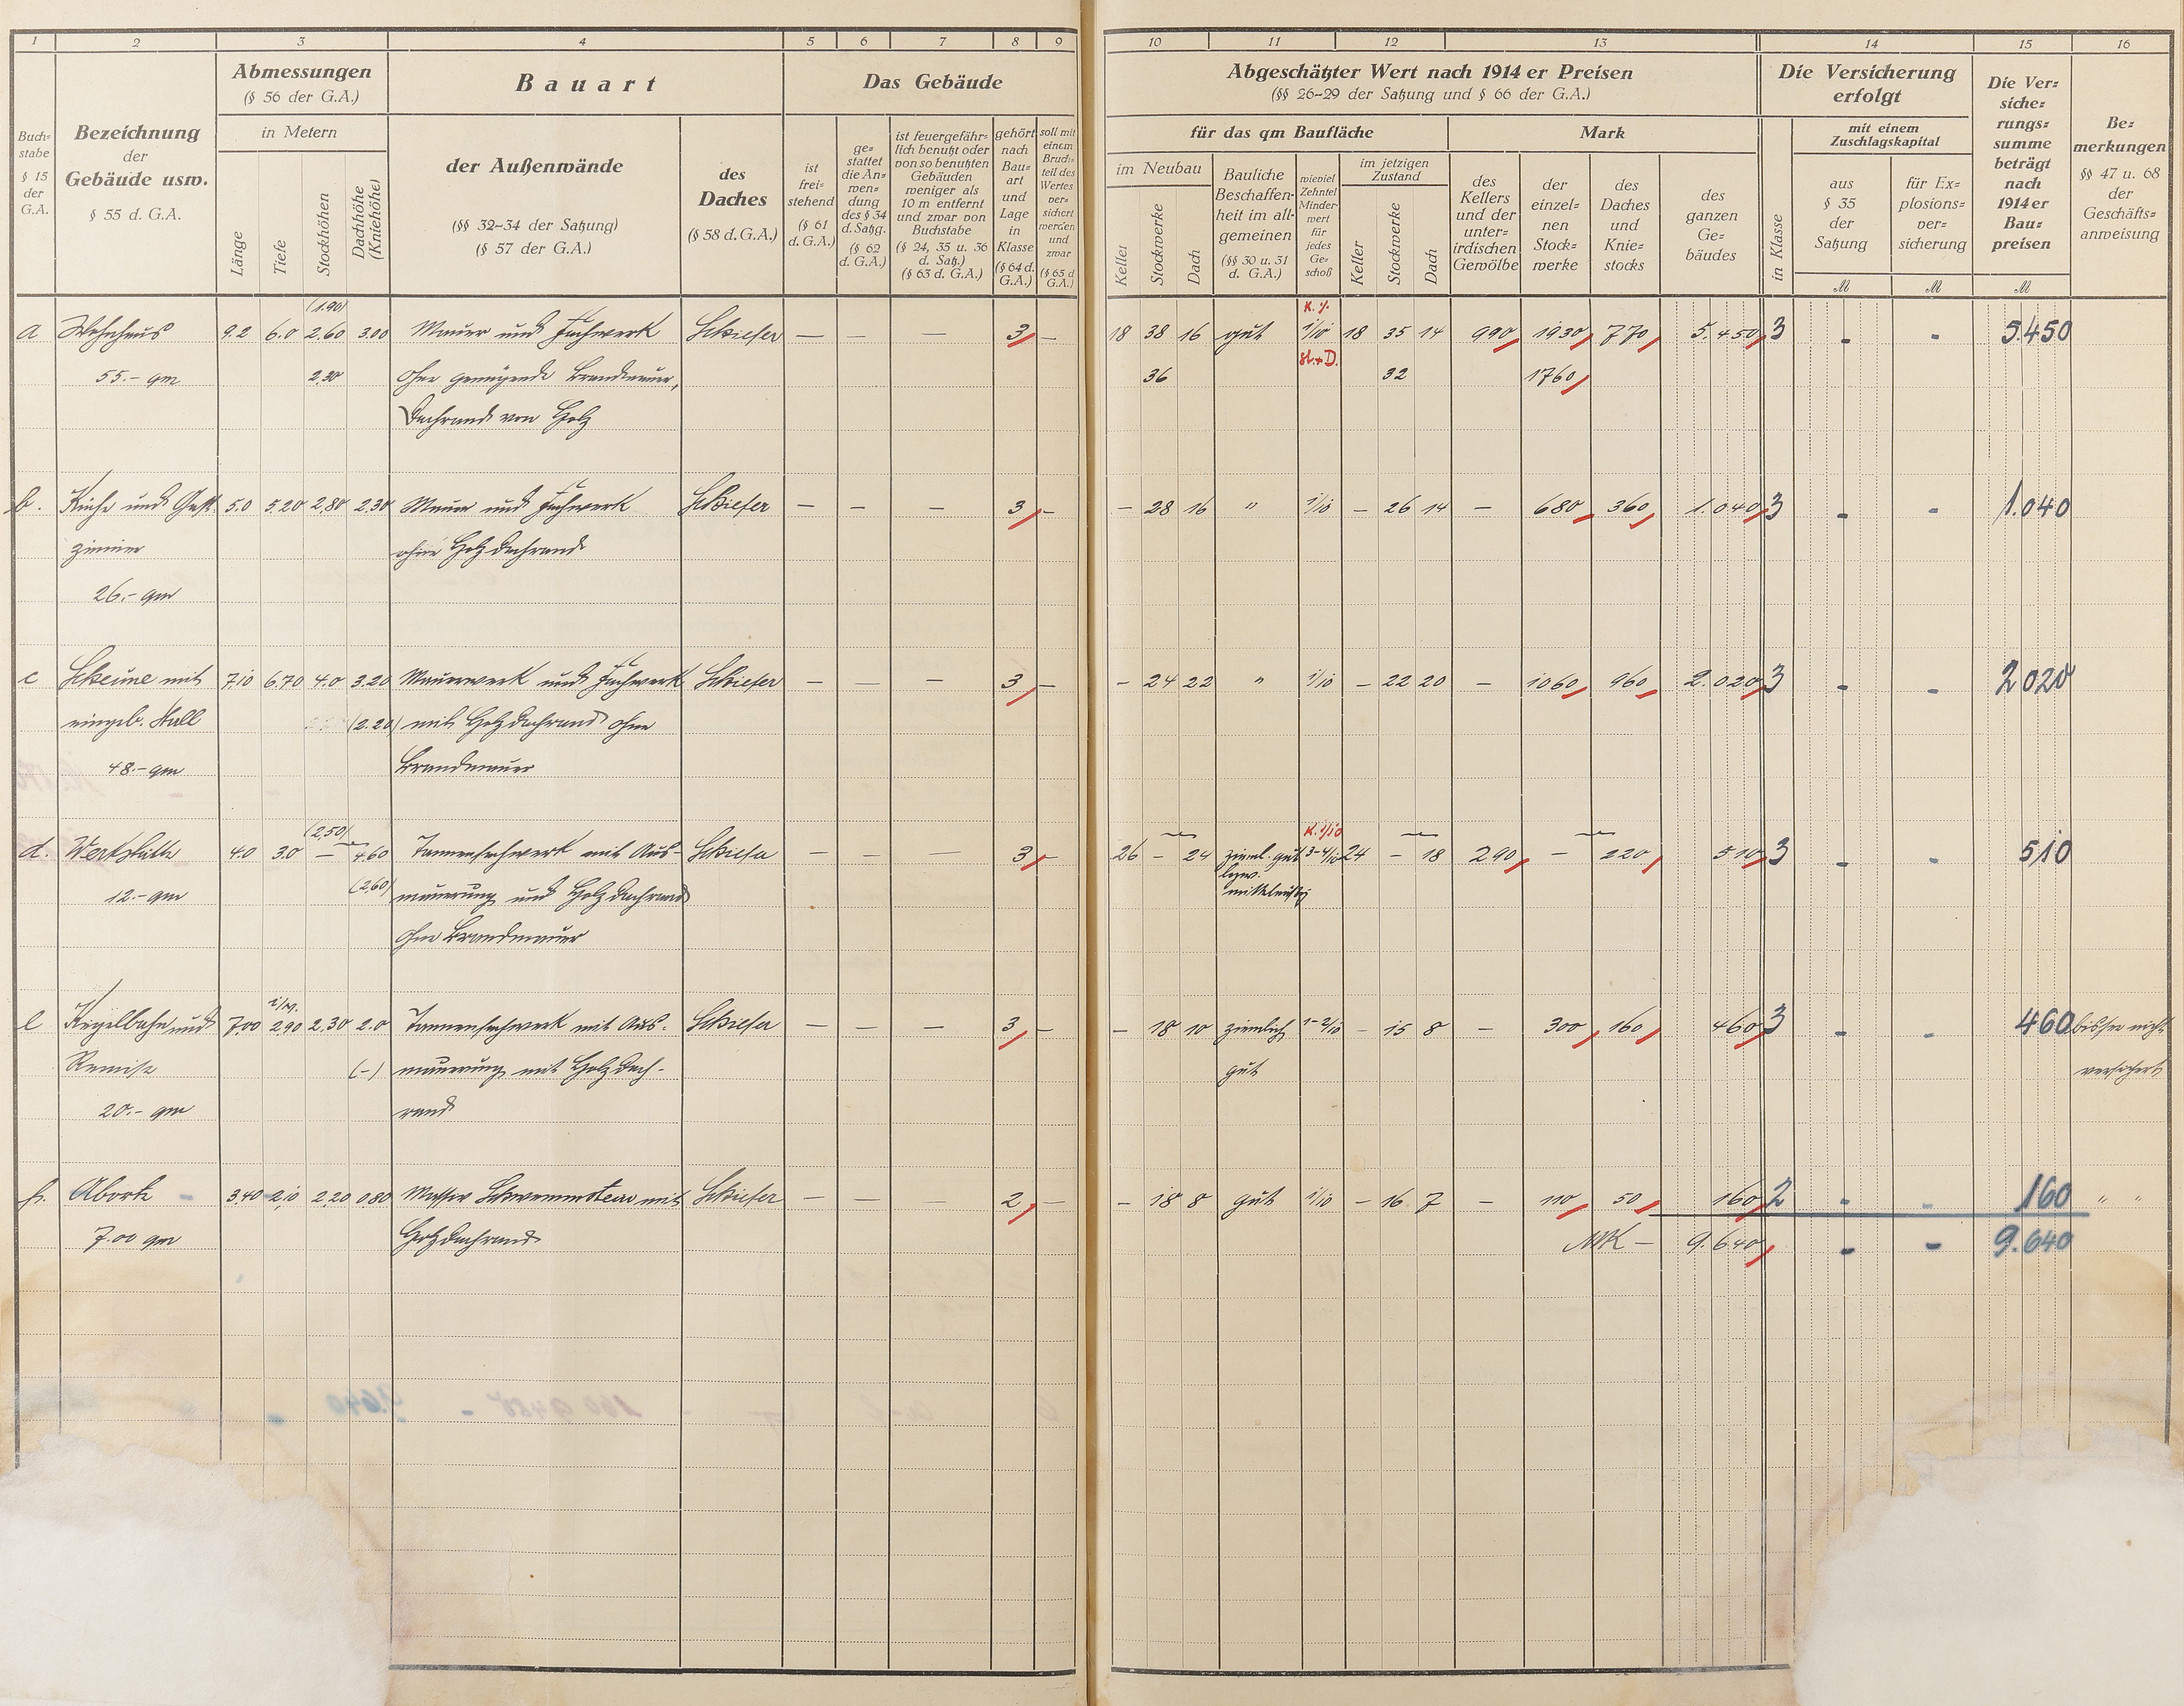 1 2 3 4 5 6 7 8 9 10 11 12 13 14 15 16
Buch=
stabe
§ 15
der
G.A.
Bezeichnung
der
Gebäude usw.
§ 55 d. G.A.
Abmessungen
(§ 56 der G.A.)
in Metern
Länge
Tiefe
Stockhöhen
Dachhöhe
(Kniehöhe)
Bauart
der Außenwände
(§§ 32-34 der Satzung)
(§ 57 der G.A.)
des
Daches
(§ 58 d.G.A.)
Das Gebäude
ist
frei=
stehend
(§ 61
d. G.A.)
ge=
stattet
die An=
wen=
dung
des § 34
d. Satzg.
(§ 62
d. G.A.)
ist feuergefähr=
lich benutzt oder
von so benutzten
Gebäuden
weniger als
10 m entfernt
und zwar von
Buchstabe
(§ 24, 35 u. 36
d. Satz.)
(§ 63 d. G.A.)
gehört
nach
Bau=
art
und
Lage
in
Klasse
(§ 64 d.
G.A.)
soll mit
einem
Bruch=
teil des
Wertes
ver=
sichert
werden
und
zwar
(§ 65 d
G.A.)
Abgeschätzter Wert nach 1914 er Preisen
(§§ 26-29 der Satzung und § 66 der G.A.)
für das qm Baufläche
Mark
im Neubau
Keller
Stockwerke
Dach
Bauliche
Beschaffen=
heit im all=
gemeinen
(§§ 30 u. 31
d. G.A.)
wieviel
Zehntel
Minder=
wert
für
jedes
Ge=
schoß
im jetzigen
Zustand
Keller
Stockwerke
Dach
des
Kellers
und der
unter=
irdischen
Gewölbe
der
einzel=
nen
Stock=
werke
des
Daches
und
Knie=
stocks
des
ganzen
Ge=
bäudes
Die Versicherung
erfolgt
in Klasse
mit einem
Zuschlagskapital
aus
§ 35
der
Satzung
für Ex=
plosions=
ver=
sicherung
Die Ver=
siche=
rungs=
summe
beträgt
nach
1914 er
Bau=
preisen
Be=
merkungen
§§ 47 u. 68
der
Geschäfts=
anweisung
M M M
(1.90) K. 1/.
a Wohnhaus 9.2 6.0 2.60 3.00 Mauer und Fachwerk Schiefer — — — 3 — 18 38 16 gut 1/10 18 35 14 990 1930 770 5.450 3 - - 5.450
St.+D.
55.- qm 2.30 ohne genügende Brandmauer, 36 32 1760
Dachrand von Holz
b. Küche und Gast 5.0 5.20 2.80 2.30 Mauer und Fachwerk Schiefer — — — 3 — — 28 16 " 1/10 — 26 14 — 680 360 1.040 3 - - 1.040
zimmer ohne Holzdachrand
26.- qm
c Scheune mit 7.10 6.70 4.0 3.20 Mauerwerk und Fachwerk Schiefer — — — 3 — — 24 22 " 1/10 — 22 20 — 1060 960 2.020 3 - - 2020
eingeb. Stall (2.20) mit Holzdachrand ohne
48.- qm Brandmauer
(2.50) K. 1/10
d. Werkstätte 4.0 3.0 — 4.60 Tannenfachwerk mit Aus- Schiefer — — 3 — 26 — 24 zieml. gut 3-4/10 24 — 18 290 — 220 510 3 - - 510
bezw.
12.- qm (2.60) mauerung und Holzdachrand mittelmäßig
ohne Brandmauer
i/M.
e Kegelbahn und 7.00 2.90 2.30 2.0 Tannenfachwerk mit Aus- Schiefer — — — 3 — — 18 10 ziemlich 1-2/10 — 15 8 — 300 160 460 3 - - 460 bisher nicht
Remise (-) mauerung mit Holzdach- gut versichert
20.- qm rand
f. Abort 3.40 2.10 2.20 0.80 Massiv Schwemmstein mit Schiefer — — — 2 — — 18 8 gut 1/10 — 16 7 — 110 50 160 2 - - 160 " "
7.00 qm Holzdachrand MK — 9.640 - - 9.640